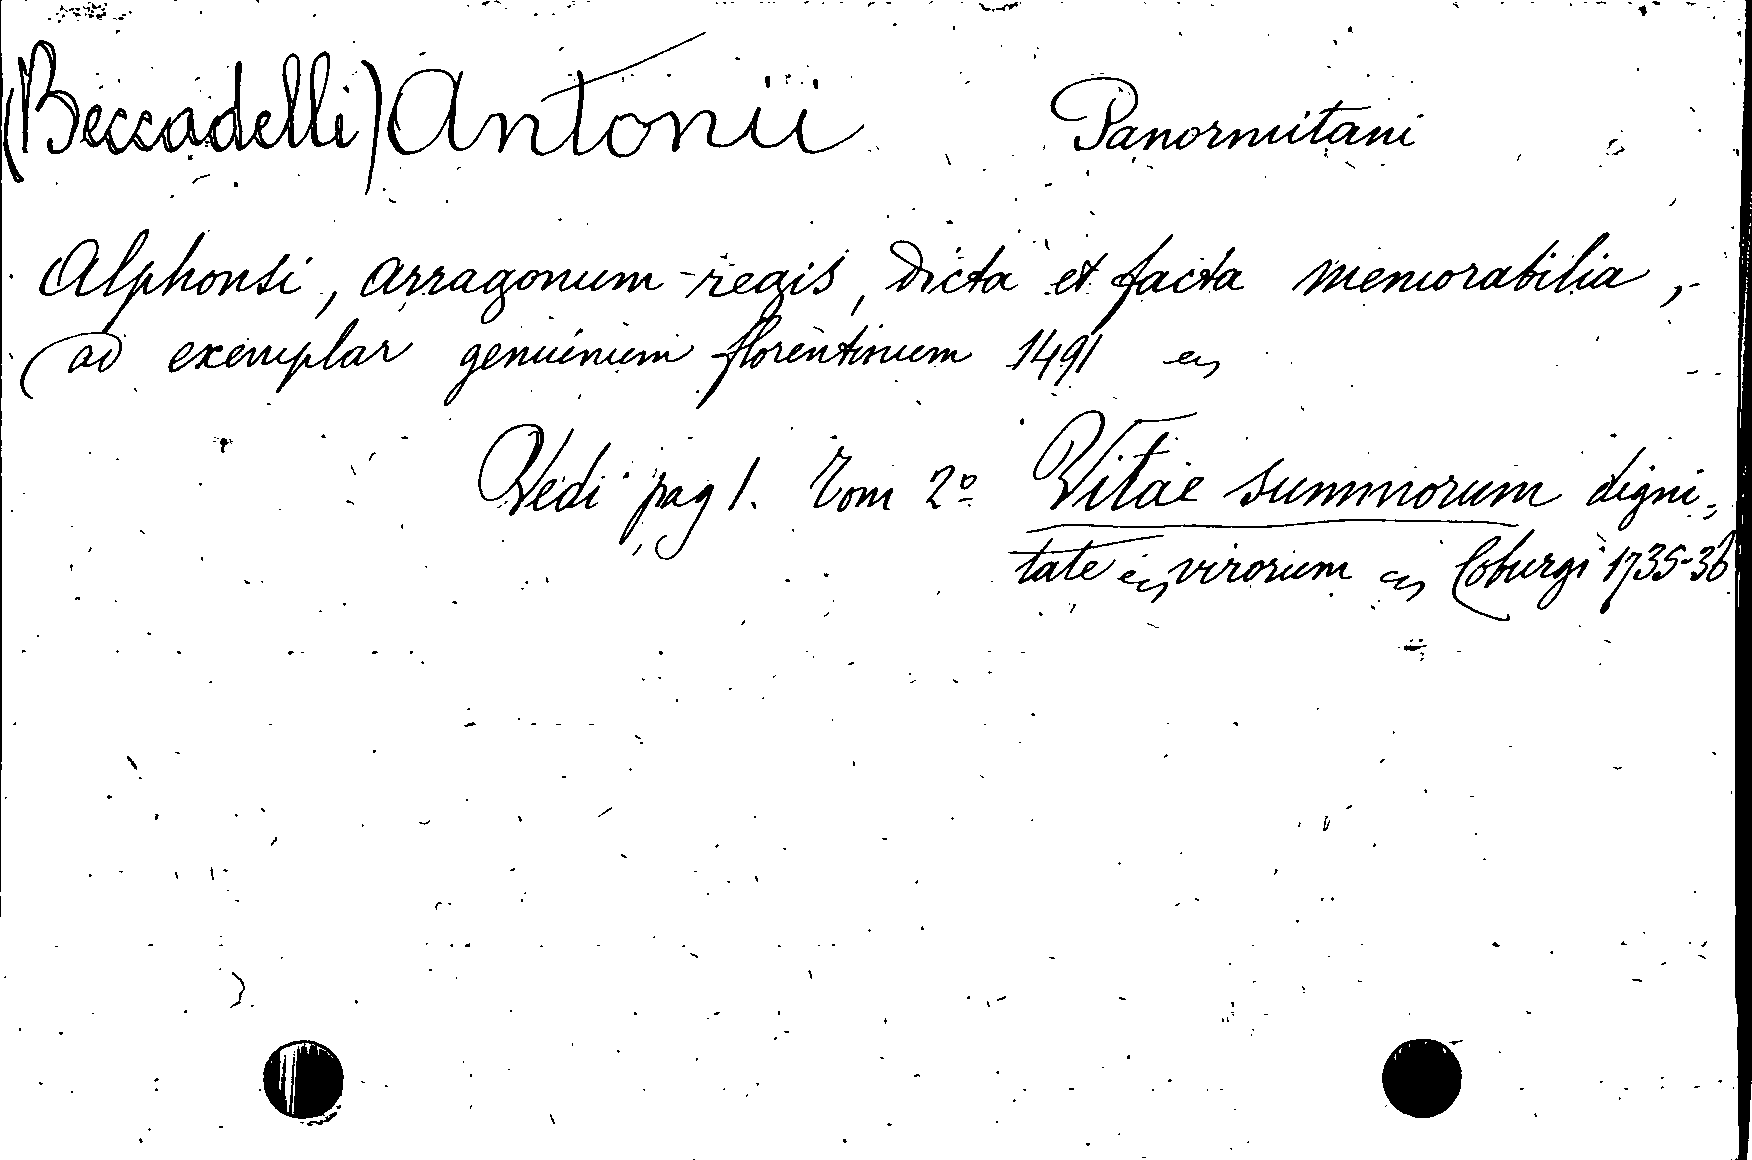 (Beccadelli) Antonii Panormitani
Alphonsi, arragonum regis, dicta et facta memorabilia,
ad exemplar genuinum florentinum 1491 ec,
Vedi pag 1. Tom 2º Vitae summorum digni,
tate ec, virorum ec, Coburgi 1735-36